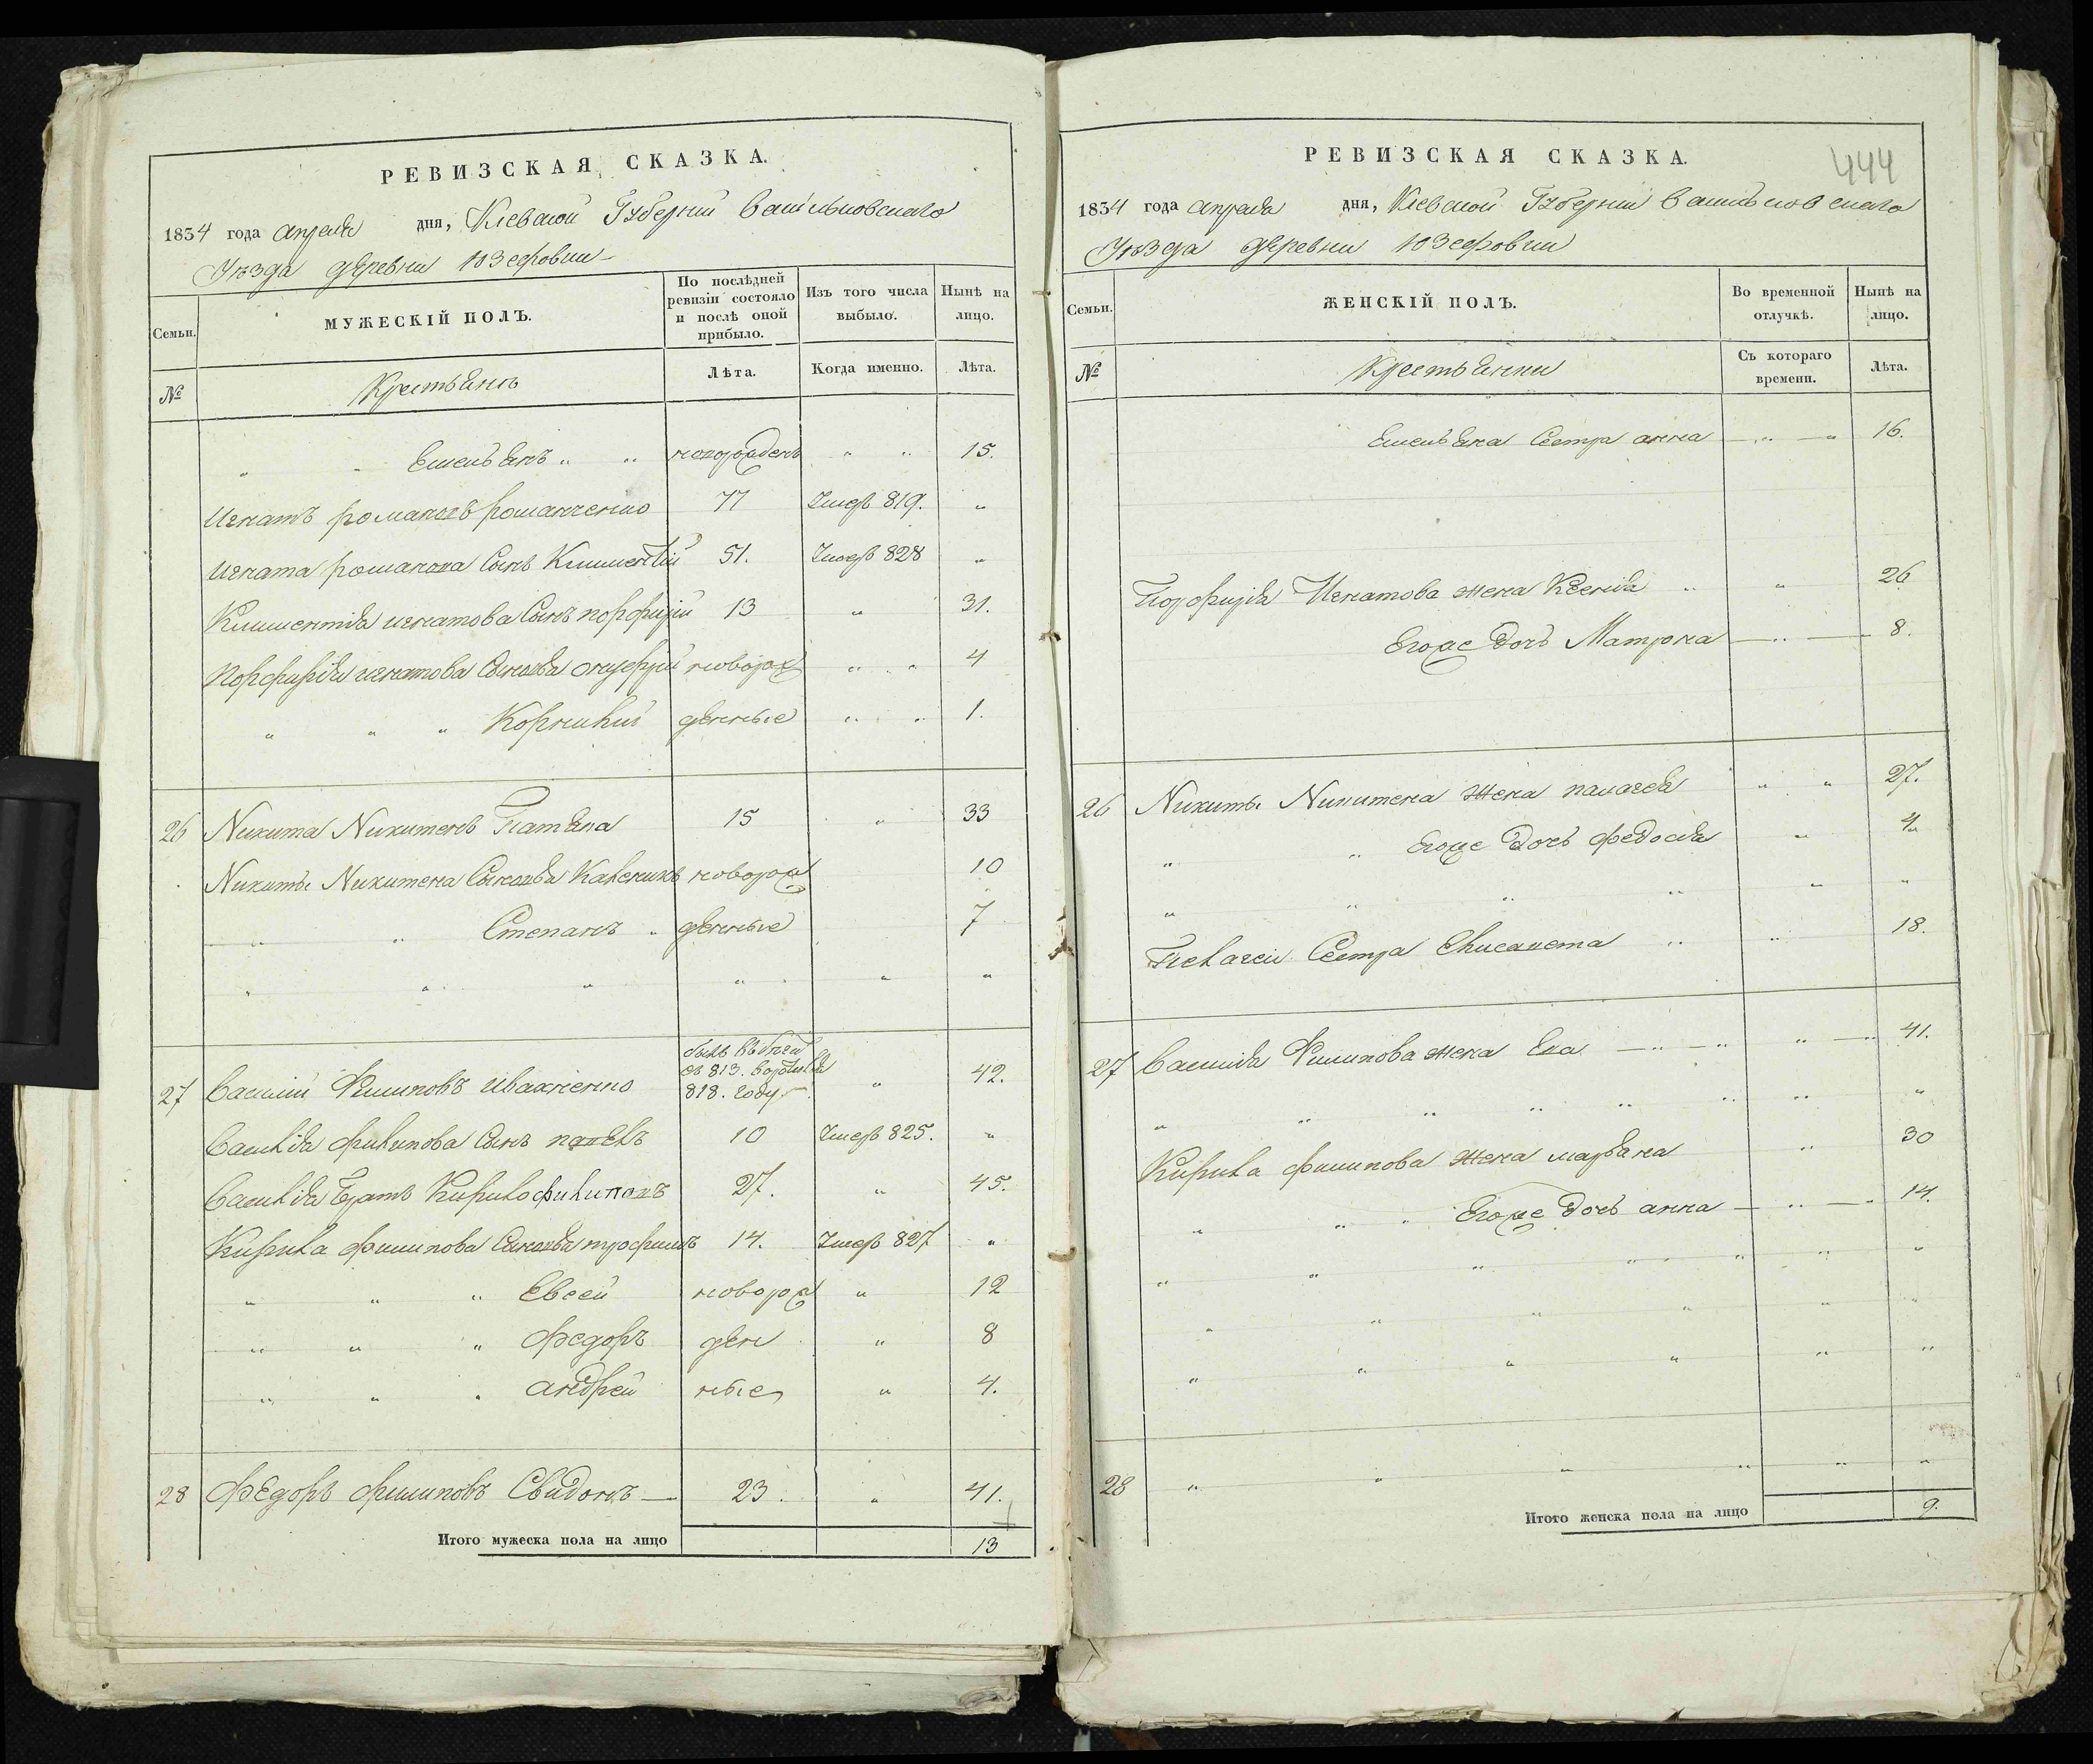 РЕВИЗСКАЯ СКАЗКА.
1834 года апреля дня, Киевской Губернии Васильковскаго
Уезда деревни Юзефовки
Семьи.
МУЖЕСКІЙ ПОЛЪ.
По послѣдней ревизіи состояло и послѣ оной прибыло.
Изъ того числа выбыло.
Нынѣ на лицо.
№
Крестьянъ
Лѣта.
Когда именно.
Лѣта.
" " Емельянъ " " новорожденъ " " 15.
Игнатъ романовъ романченко 77 Умеръ 819. "
Игната романова Сынъ Климентій 51. Умеръ 828 "
Климентія игнатова Сынъ порфирій 13 " 31.
Порфирія игнатова Сыновья онуфрій новорож " " 4
" " " Корнилий денные " " 1.
26 Никита Никитенъ 15 " 33
Никиты Никитена Сыновья Каленикъ новорож 10
" " Степанъ " денные 7
" " " " " "
27 Василий Филиповъ Ивахненко былъ въ бегах съ 813. воротился 818. году " 42.
Василія филипова Сынъ павелъ 10 Умеръ 825. "
Василія Братъ Кирило филиповъ 27. " 45.
Кирила филипова Сыновья трофимъ 14. Умеръ 827 "
" " " Евсей новорож " 12
" " " Федоръ ден " 8
" " " андрей ные " 4.
28 Федоръ филиповъ Свидонъ — 23. " 41.
Итого мужеска пола на лицо 13
444
РЕВИЗСКАЯ СКАЗКА.
1834 года апреля дня, Киевской Губернии Васильковскаго
Уезда деревни Юзефовки
Семьи.
ЖЕНСКІЙ ПОЛЪ.
Во временной отлучкѣ.
Нынѣ на лицо.
№
Крестьянки
Съ котораго времени.
Лѣта.
Емельяна Сестра анна — " — " 16.
Порфирія Игнатова жена Ксенія " " 26
Егоже дочь Матрона — " — 8.
26 Никиты Никитена жена палагея " " 27.
" " Егоже дочь федосія " 4
" " " " " "
Пелагеи Сестра Елисавета " " 18.
27 Василія Филипова жена Ева — " — " " — " 41.
" " " " " " " "
Кирила филипова жена марьяна " 30
" " " Егоже дочь анна — " — " 14.
" " " " " " "
" " " " " "
" " " " " "
28 " " " " " "
Итого женска пола на лицо 9.